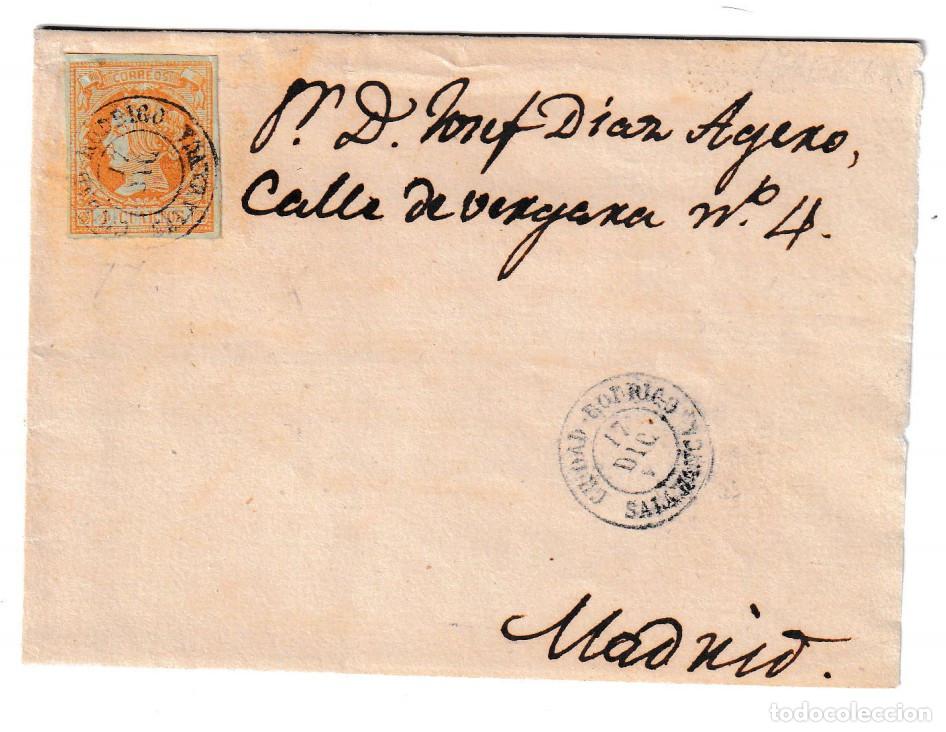 CORREOS
Sr. D. Josef Dian Agero,
Calle de vergara nº. 4.
CIUDAD-RODRIGO
17
DIC
SALAMANCA
Madrid.
todocoleccion